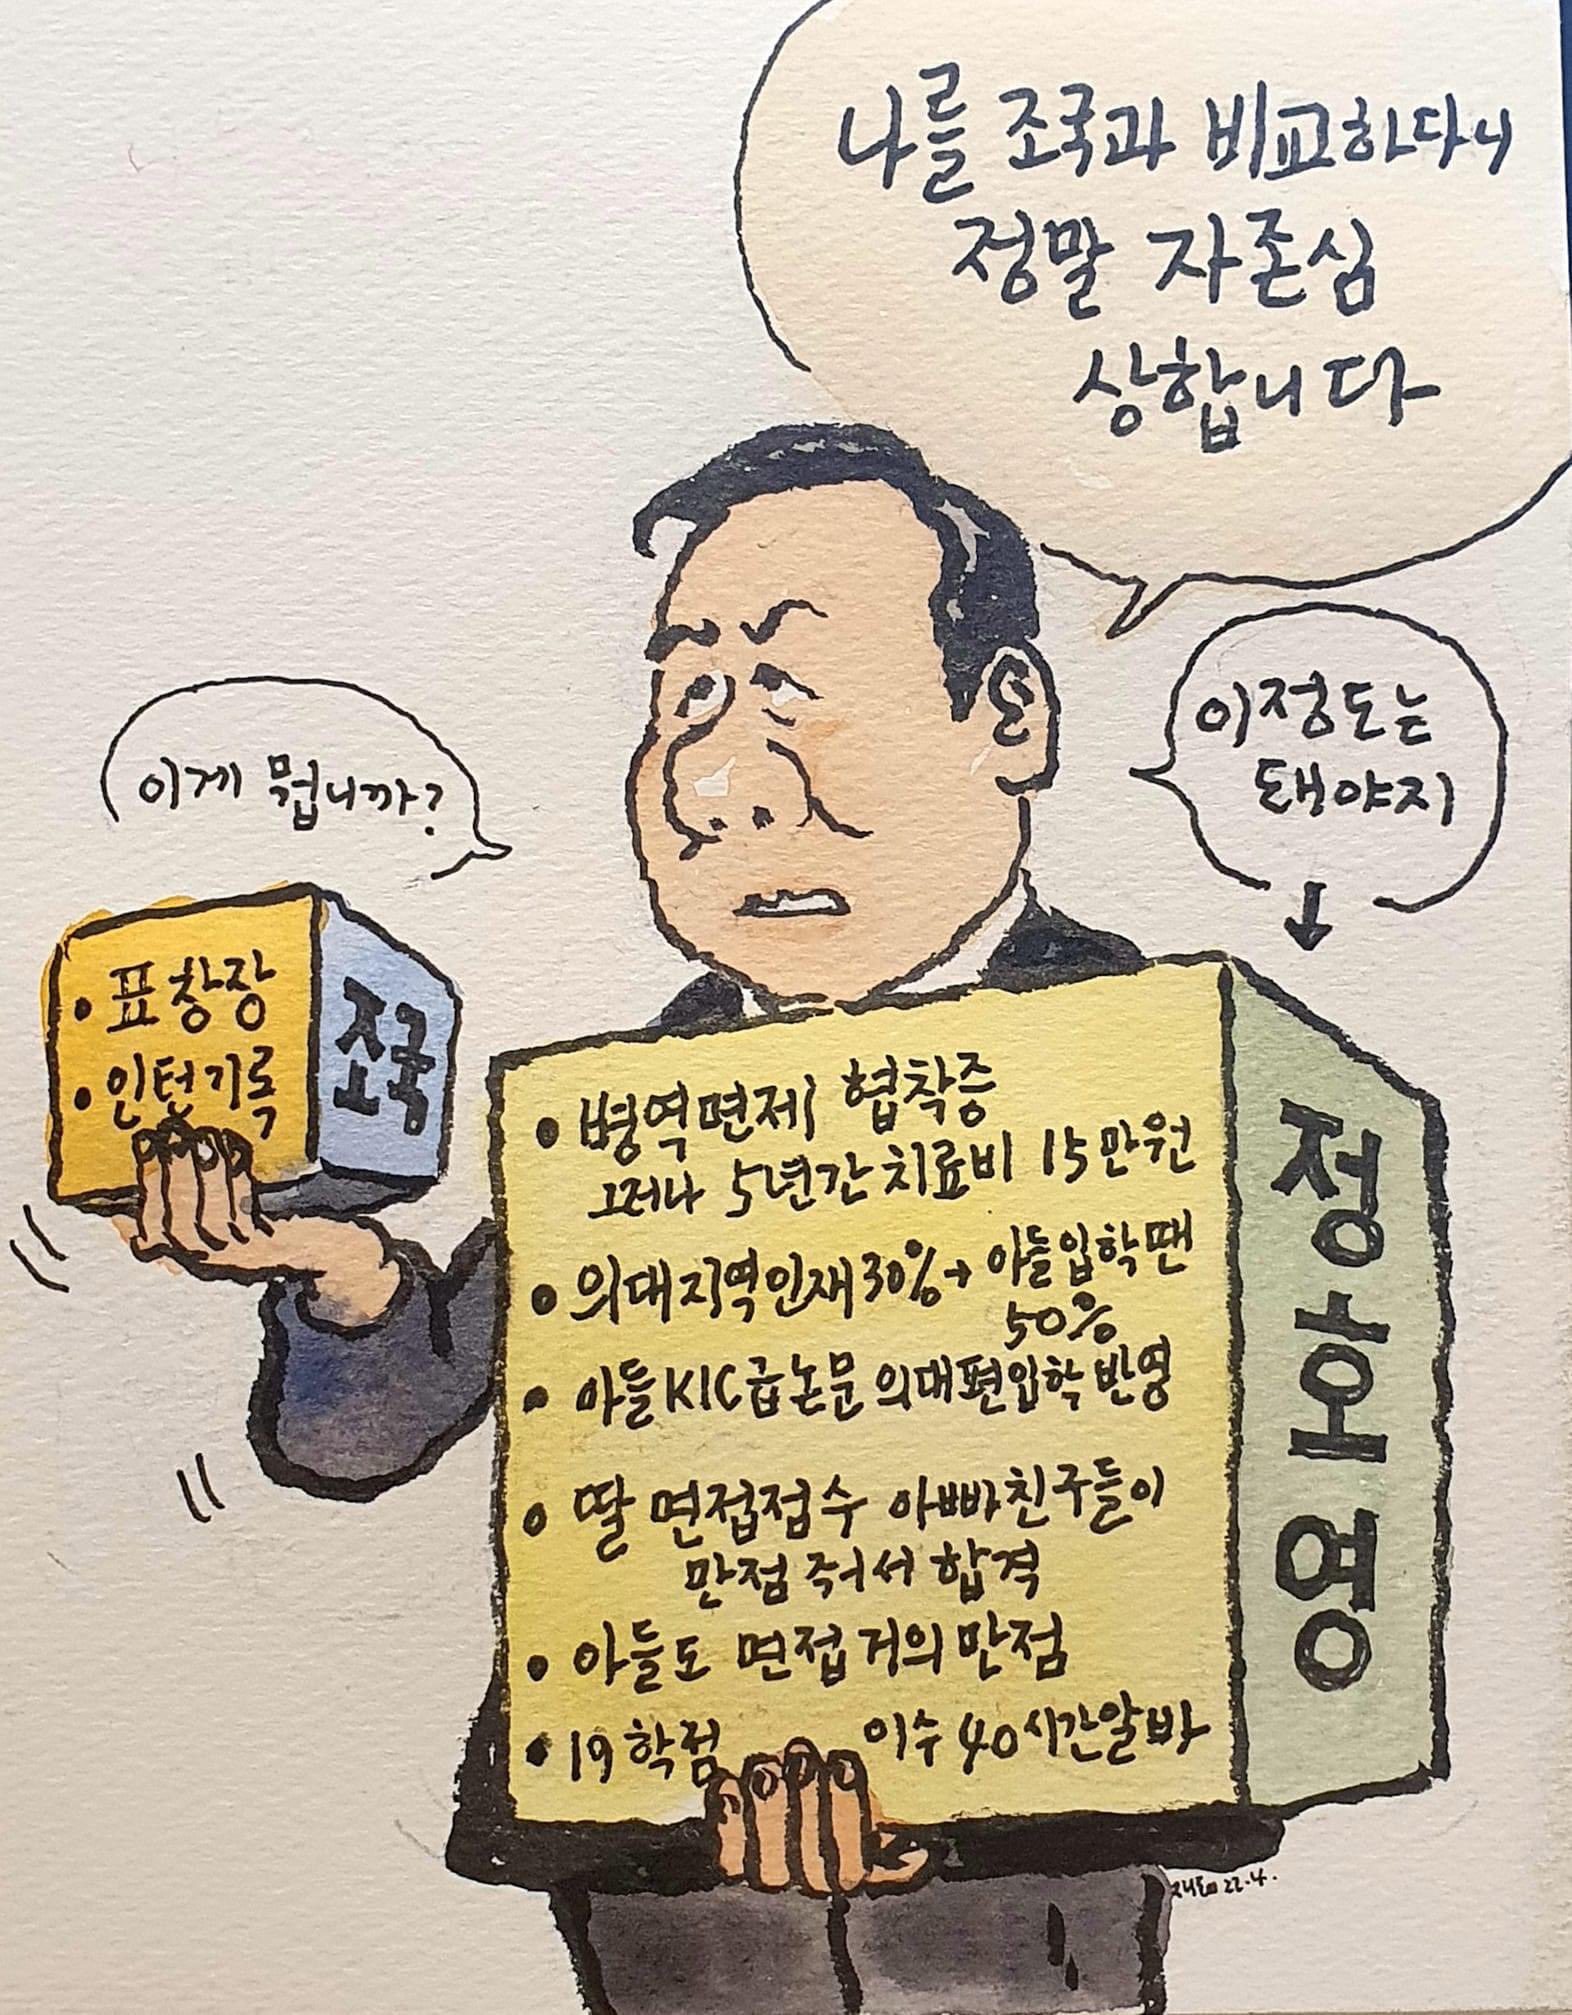 나를 조국과 비교하다니
정말 자존심
상합니다
이정도는
돼야지
이게 뭡니까?
• 표창장
• 인턴기록
조국
• 병역면제 협착증
그러나 5년간 치료비 15만원
• 의대지역인재30%→ 아들입학땐
50%
• 아들KIC급논문의대편입학 반영
• 딸 면접점수 아빠친구들이
만점 줘서 합격
• 아들도 면접 거의 만점
• 19학점 이수 40시간알바
정호영
22.4.